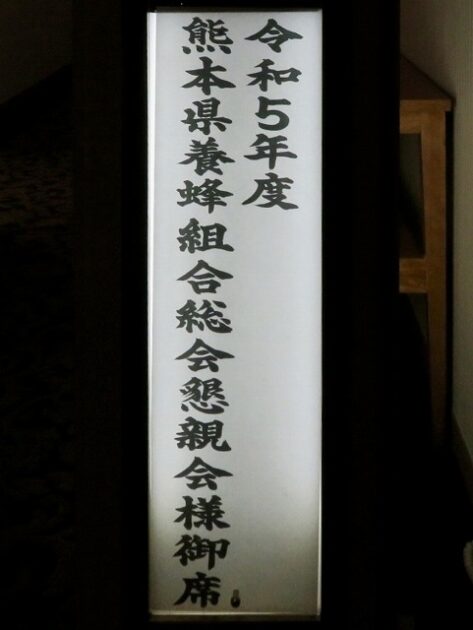 令和5年度
熊本県養蜂組合総会懇親会様御席